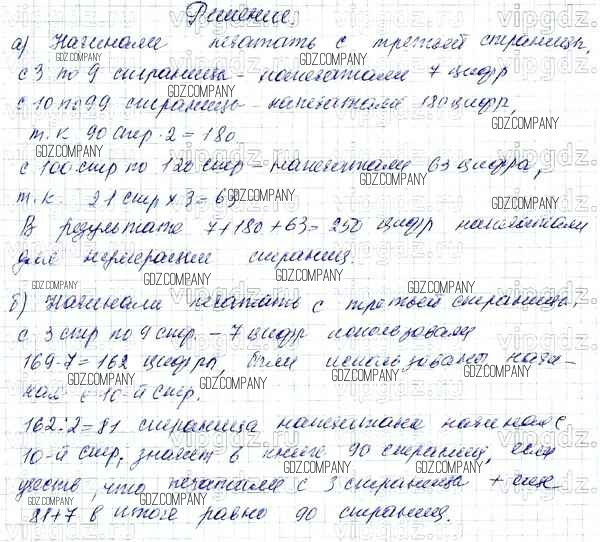 Решение.
а) Начинали печатать с третьей страницы.
с 3 по 9 страницы – напечатали 7 цифр
с 10 по 99 страницы – напечатали 180 цифр,
т.к. 90 стр · 2 = 180
с 100 стр по 120 стр – напечатали 63 цифра,
т.к. 21 стр x 3 = 63
В результате 7+180+63=250 цифр напечатали
для нумерации страниц.
б) Начинали печатать с третьей страницы.
с 3 стр по 9 стр. – 7 цифр использовали
169-7=162 цифры, были использованы начи-
ная с 10-й стр.
162:2=81 страница напечатана начиная с
10-й стр, значит в книге 90 страниц, если
учесть, что печатали с 3 страницы +
81+7 в итоге равно 90 страниц.